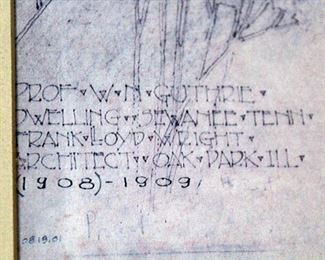 PROF▾W▾N▾GUTHRIE▾
DWELLING▾▾SEWANEE▾TENN▾
FRANK▾LLOYD▾WRIGHT▾
ARCHITECT▾▾OAK▾PARK▾ILL▾
(1908)-1909
08.19.01